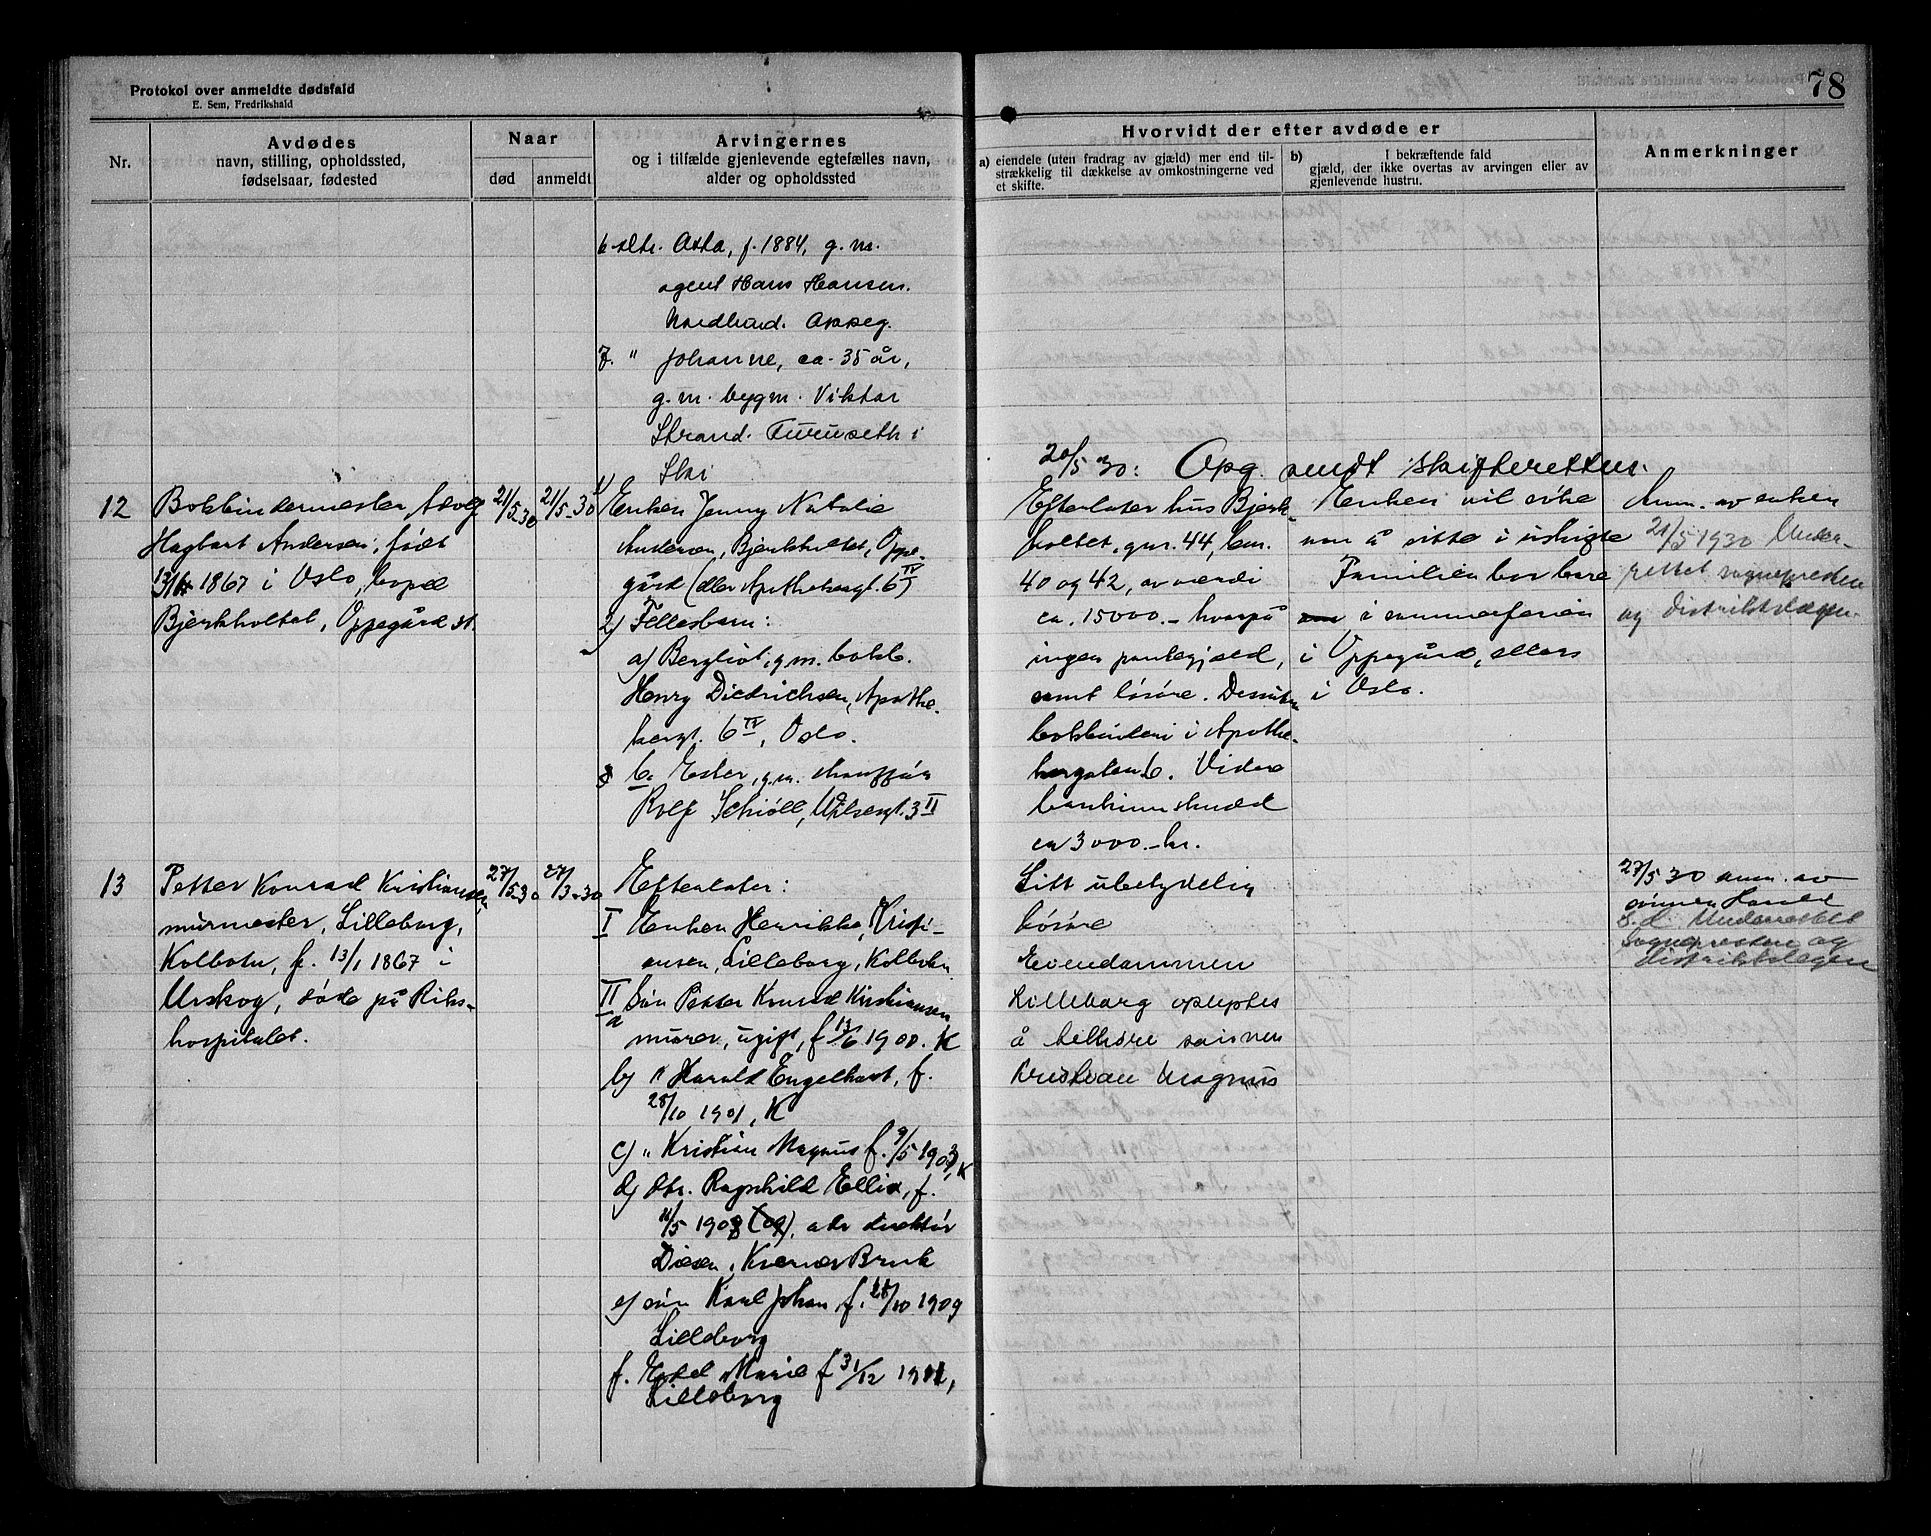 Protokol over anmeldte dødsfald
E. Sem, Fredrikshald
78
Nr.
Avdødes
navn, stilling, opholdssted,
fødselsaar, fødested
Naar
død
anmeldt
Arvingernes
og i tilfælde gjenlevende egtefælles navn,
alder og opholdssted
Hvorvidt der efter avdøde er
a) eiendele (uten fradrag av gjæld) mer end til-
strækkelig til dækkelse av omkostningerne ved
et skifte.
b) I bekræftende fald
gjæld, der ikke overtas av arvingen eller av
gjenlevende hustru.
Anmerkninger
6 dtr. Asta, f. 1884, g. m.
agent Hans Hansen.
Nordstrand. Oppeg.
7. " Johanne, ca. 35 år,
g. m. bygm. Viktor
Strand. Furuseth i
Ski
20/5 30: Opg. sendt skifteretten.
12
Bokbindermester Adolf
Hagbart Andersen, født
1867 i Oslo, bopæl
Bjerkholtet, Oppegård st.
21/5-30
21/5-30
1) Enken Jenny Natalie
Andersen, Bjerkholtet, Oppe-
gård (eller Apothekergt. 6 IV)
2) Fellesbarn:
a) Bergliot, g.m. bokb.
Henry Diedrichsen, Apothe-
kergt. 6 IV, Oslo.
b. Ester, g.m. chauffør
Rolf Schiøll, 3 II
Efterlater hus Bjerk-
holtet, gnr. 44, bnr.
40 og 42, av værdi
ca. 15000.- hvorpå
ingen pantegjæld,
samt løsøre. Desuten
bokbinderi i Apothe-
kergaten 6. Videre
bankinnskudd
ca 3000.- kr.
Enken vil søke
om å sitte i uskifte
Familien bor bare
i sommerferien
i Oppegård, ellers
i Oslo.
Anm. av enken
21/5 1930 Under-
rettet sognepresten
og distriktslægen.
13
Petter Konrad Kristiansen,
murmester, Lilleborg,
Kolbotn, f. 13/1 1867 i
Urskog, døde på Riks-
hospitalet.
27/5 30
27/3-30
Efterlater:
I Enken Henrikke Kristi-
ansen, Lilleborg, Kolbotn
II Søn Petter Konrad Kristiansen
a murer, ugift, f 13/6 1900. K
b) " Harald Engelhart, f.
28/10 1901, K
c) " Kristian Magnus f. 9/5 1903, K
d) dtr. Ragnhild f.
11/5 1908 (09), adr direktør
Diesen, Kværner Bruk
e) søn Karl Johan f. 28/10 1909
Lilleborg
f. Marie f 31/12 1911,
Lilleborg
Litt ubetydelig
løsøre
Eiendommen
Lilleborg oplystes
å tilhøre sønnen
Kristian Magnus
27/5 30 anm. av
sønnen Harald
s.d. Underrettet
sognepresten og
distriktslægen